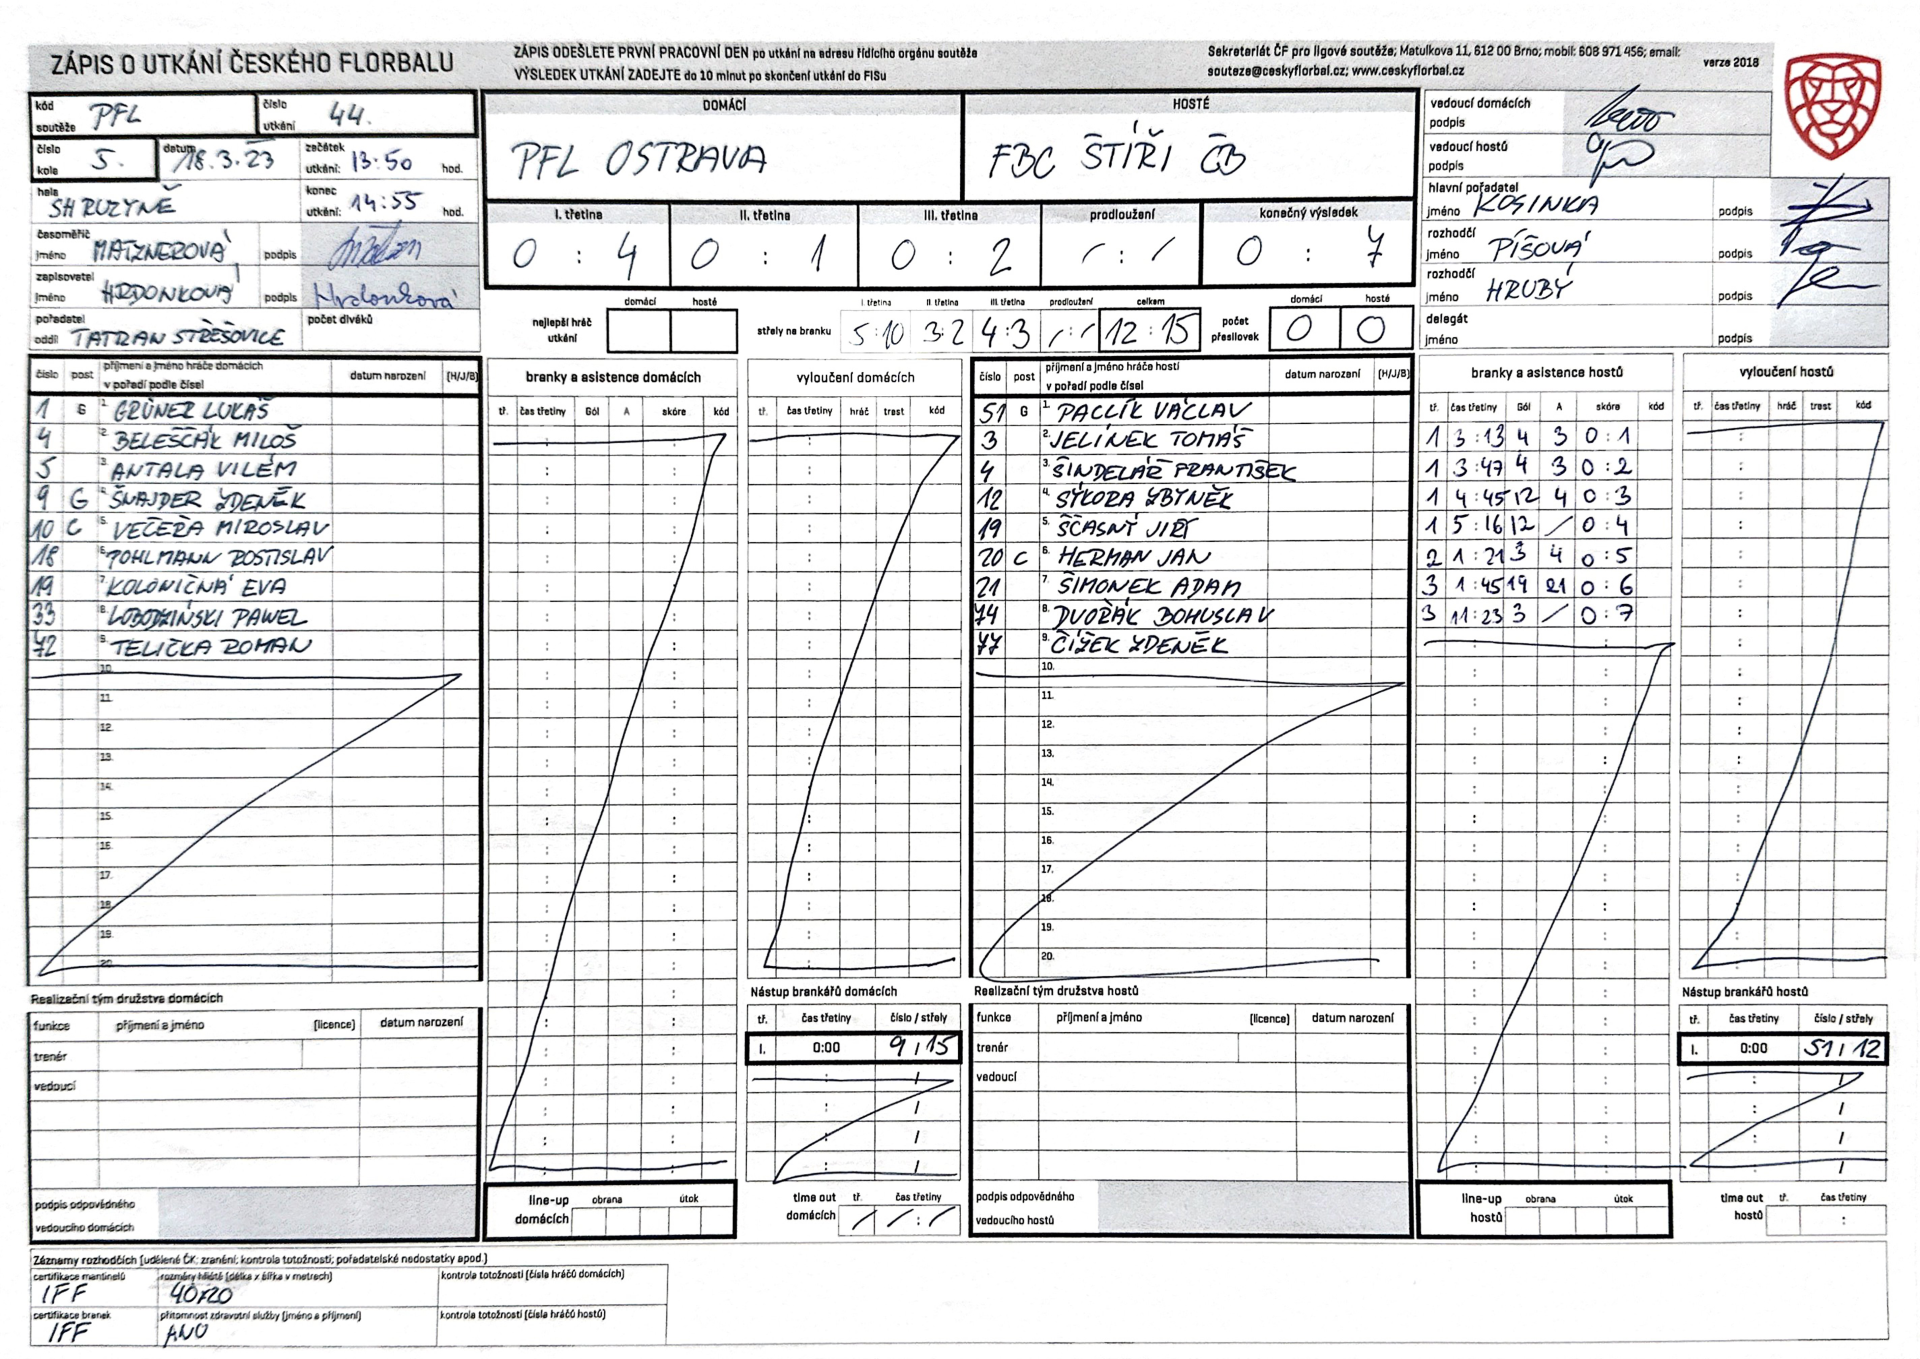 ZÁPIS O UTKÁNÍ ČESKÉHO FLORBALU
ZÁPIS ODEŠLETE PRVNÍ PRACOVNÍ DEN po utkání na adresu řídícího orgánu soutěže
VÝSLEDEK UTKÁNÍ ZADEJTE do 10 minut po skončení utkání do FISu
Sekretariát ČF pro ligové soutěže; Matulkova 11, 612 00 Brno; mobil: 608 971 456; email:
souteze@ceskyflorbal.cz; www.ceskyflorbal.cz
verze 2018
kód soutěže PFL číslo utkání 44.
číslo kola 5. datum 18.3.23 začátek utkání: 13:50 hod.
hala SH RUZYNĚ konec utkání: 14:55 hod.
časoměřič jméno MATZNEROVÁ podpis
zapisovatel jméno HRDONKOVÁ podpis Hrdonková
pořadatel oddíl TATRAN STŘEŠOVICE počet diváků
DOMÁCÍ HOSTÉ
PFL OSTRAVA FBC ŠTÍŘI ČB
I. třetina II. třetina III. třetina prodloužení konečný výsledek
0 : 4 0 : 1 0 : 2 / : / 0 : 7
nejlepší hráč utkání domácí hosté
střely na branku I. třetina II. třetina III. třetina prodloužení celkem
5:10 3:2 4:3 /:/ 12:15
počet přesilovek domácí hosté
0 0
vedoucí domácích podpis
vedoucí hostů podpis
hlavní pořadatel jméno KOSINKA podpis
rozhodčí jméno PÍŠOVÁ podpis
rozhodčí jméno HRUBÝ podpis
delegát jméno podpis
číslo post příjmení a jméno hráče domácích v pořadí podle čísel datum narození (H/J/B)
1 G 1. GRÜNER LUKÁŠ
4 2. BELEŠČÁK MILOŠ
5 3. ANTALA VILÉM
9 G 4. ŠNAJDER ZDENĚK
10 C 5. VEČEŘA MIROSLAV
18 6. POHLMANN ROSTISLAV
19 7. KOLONIČNÁ EVA
33 8. LOBODZIŃSKI PAWEL
72 9. TELIČKA ROMAN
10.
11.
12.
13.
14.
15.
16.
17.
18.
19.
20.
branky a asistence domácích
tř. čas třetiny Gól A skóre kód
vyloučení domácích
tř. čas třetiny hráč trest kód
číslo post příjmení a jméno hráče hostí v pořadí podle čísel datum narození (H/J/B)
51 G 1. PACLÍK VÁCLAV
3 2. JELÍNEK TOMÁŠ
4 3. ŠINDELÁŘ FRANTIŠEK
12 4. SÝKORA ZBYNĚK
19 5. ŠČASNÝ JIŘÍ
20 C 6. HERMAN JAN
21 7. ŠIMONEK ADAM
74 8. DVOŘÁK BOHUSLAV
77 9. ČÍŽEK ZDENĚK
10.
11.
12.
13.
14.
15.
16.
17.
18.
19.
20.
branky a asistence hostů
tř. čas třetiny Gól A skóre kód
1 3:13 4 3 0:1
1 3:47 4 3 0:2
1 4:45 12 4 0:3
1 5:16 12 / 0:4
2 1:21 3 4 0:5
3 1:45 19 21 0:6
3 11:23 3 / 0:7
vyloučení hostů
tř. čas třetiny hráč trest kód
Realizační tým družstva domácích
funkce příjmení a jméno (licence) datum narození
trenér
vedoucí
podpis odpovědného vedoucího domácích
line-up domácích obrana útok
Nástup brankářů domácích
tř. čas třetiny číslo / střely
I. 0:00 9 / 15
time out domácích tř. čas třetiny
/ / : /
Realizační tým družstva hostů
funkce příjmení a jméno (licence) datum narození
trenér
vedoucí
podpis odpovědného vedoucího hostů
line-up hostů obrana útok
Nástup brankářů hostů
tř. čas třetiny číslo / střely
I. 0:00 51 / 12
time out hostů tř. čas třetiny
:
Záznamy rozhodčích (udělené ČK; zranění; kontrola totožnosti; pořadatelské nedostatky apod.)
certifikace mantinelů IFF rozměry hřiště (délka x šířka v metrech) 40x20 kontrola totožnosti (čísla hráčů domácích)
certifikace branek IFF přítomnost zdravotní služby (jméno a příjmení) ANO kontrola totožnosti (čísla hráčů hostů)